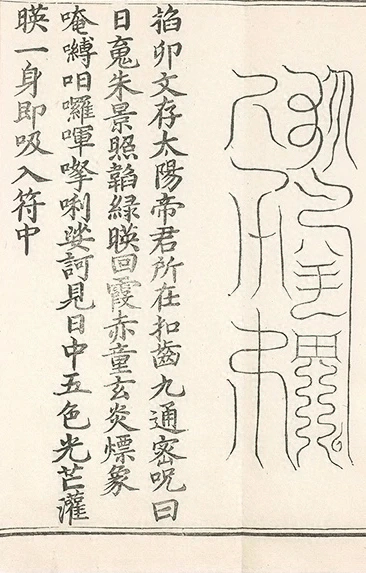 掐卯文存太陽帝君所在扣齒九通密呪曰
日䰟朱景照韜綠暎回霞赤童玄炎熛象
唵嚩呬囉喗唎娑訶見日中五色光芒灌
暎一身即吸入符中